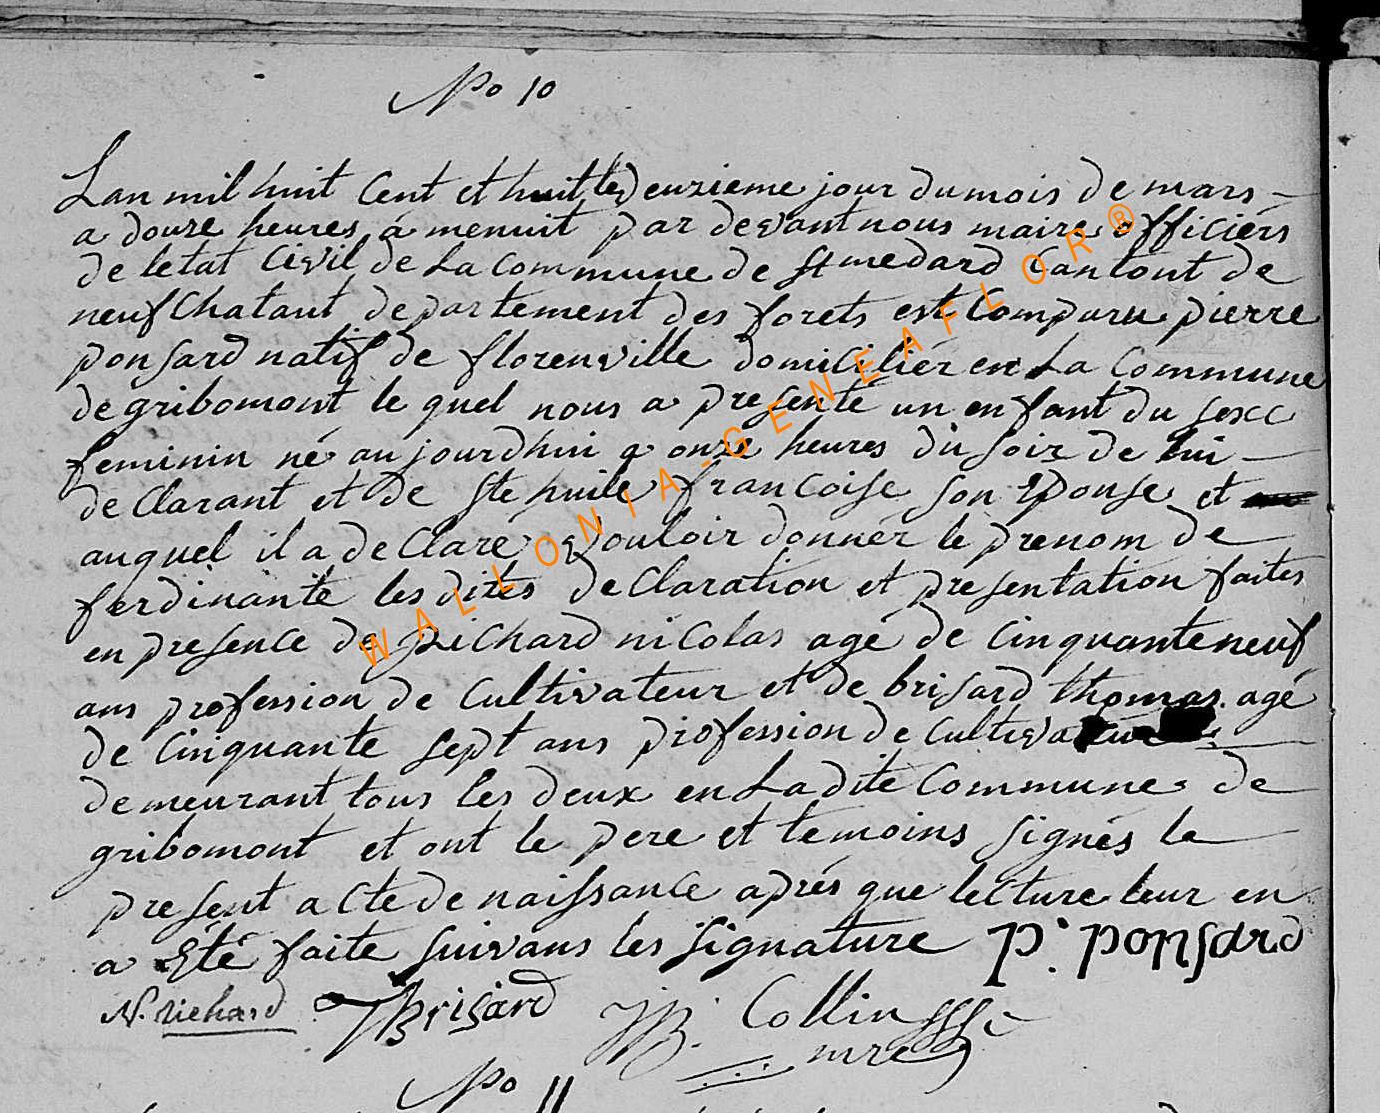 No 10
Lan mil huit Cent et huit le deuzieme jour du mois de mars
a douze heures a menuit par devant nous maire officiérs
de letat Civil de La Commune de St medard Cantont de
neufChataut departement des forets est Comparu pierre
ponsard natif de florenville domicilier en La Commune
de gribomont le quel nous a presenté un enfant du sexe
feminin né aujourdhui a onze heures du soir de lui
deClarant et de francoise son Epouse et
auquel il a deClaré vouloir donnér le prenom de
ferdinante les dites deClaration et presentation faites
en presence de Richard nicolas agé de Cinquante neuf
ans profession de Cultivateur et de brisard thomas agé
de Cinquante sept ans profession de Cultivateur
demeurant tous les deux en Ladite Commune de
gribomont et ont le pere et temoins signés le
present acte de naissance aprés que lecture leur en
a Eté faite suivans les signature p. ponsard
N. Richard TBrisard JB. Collin
mre
No 11
WALLONIA-GENEAFLOR®